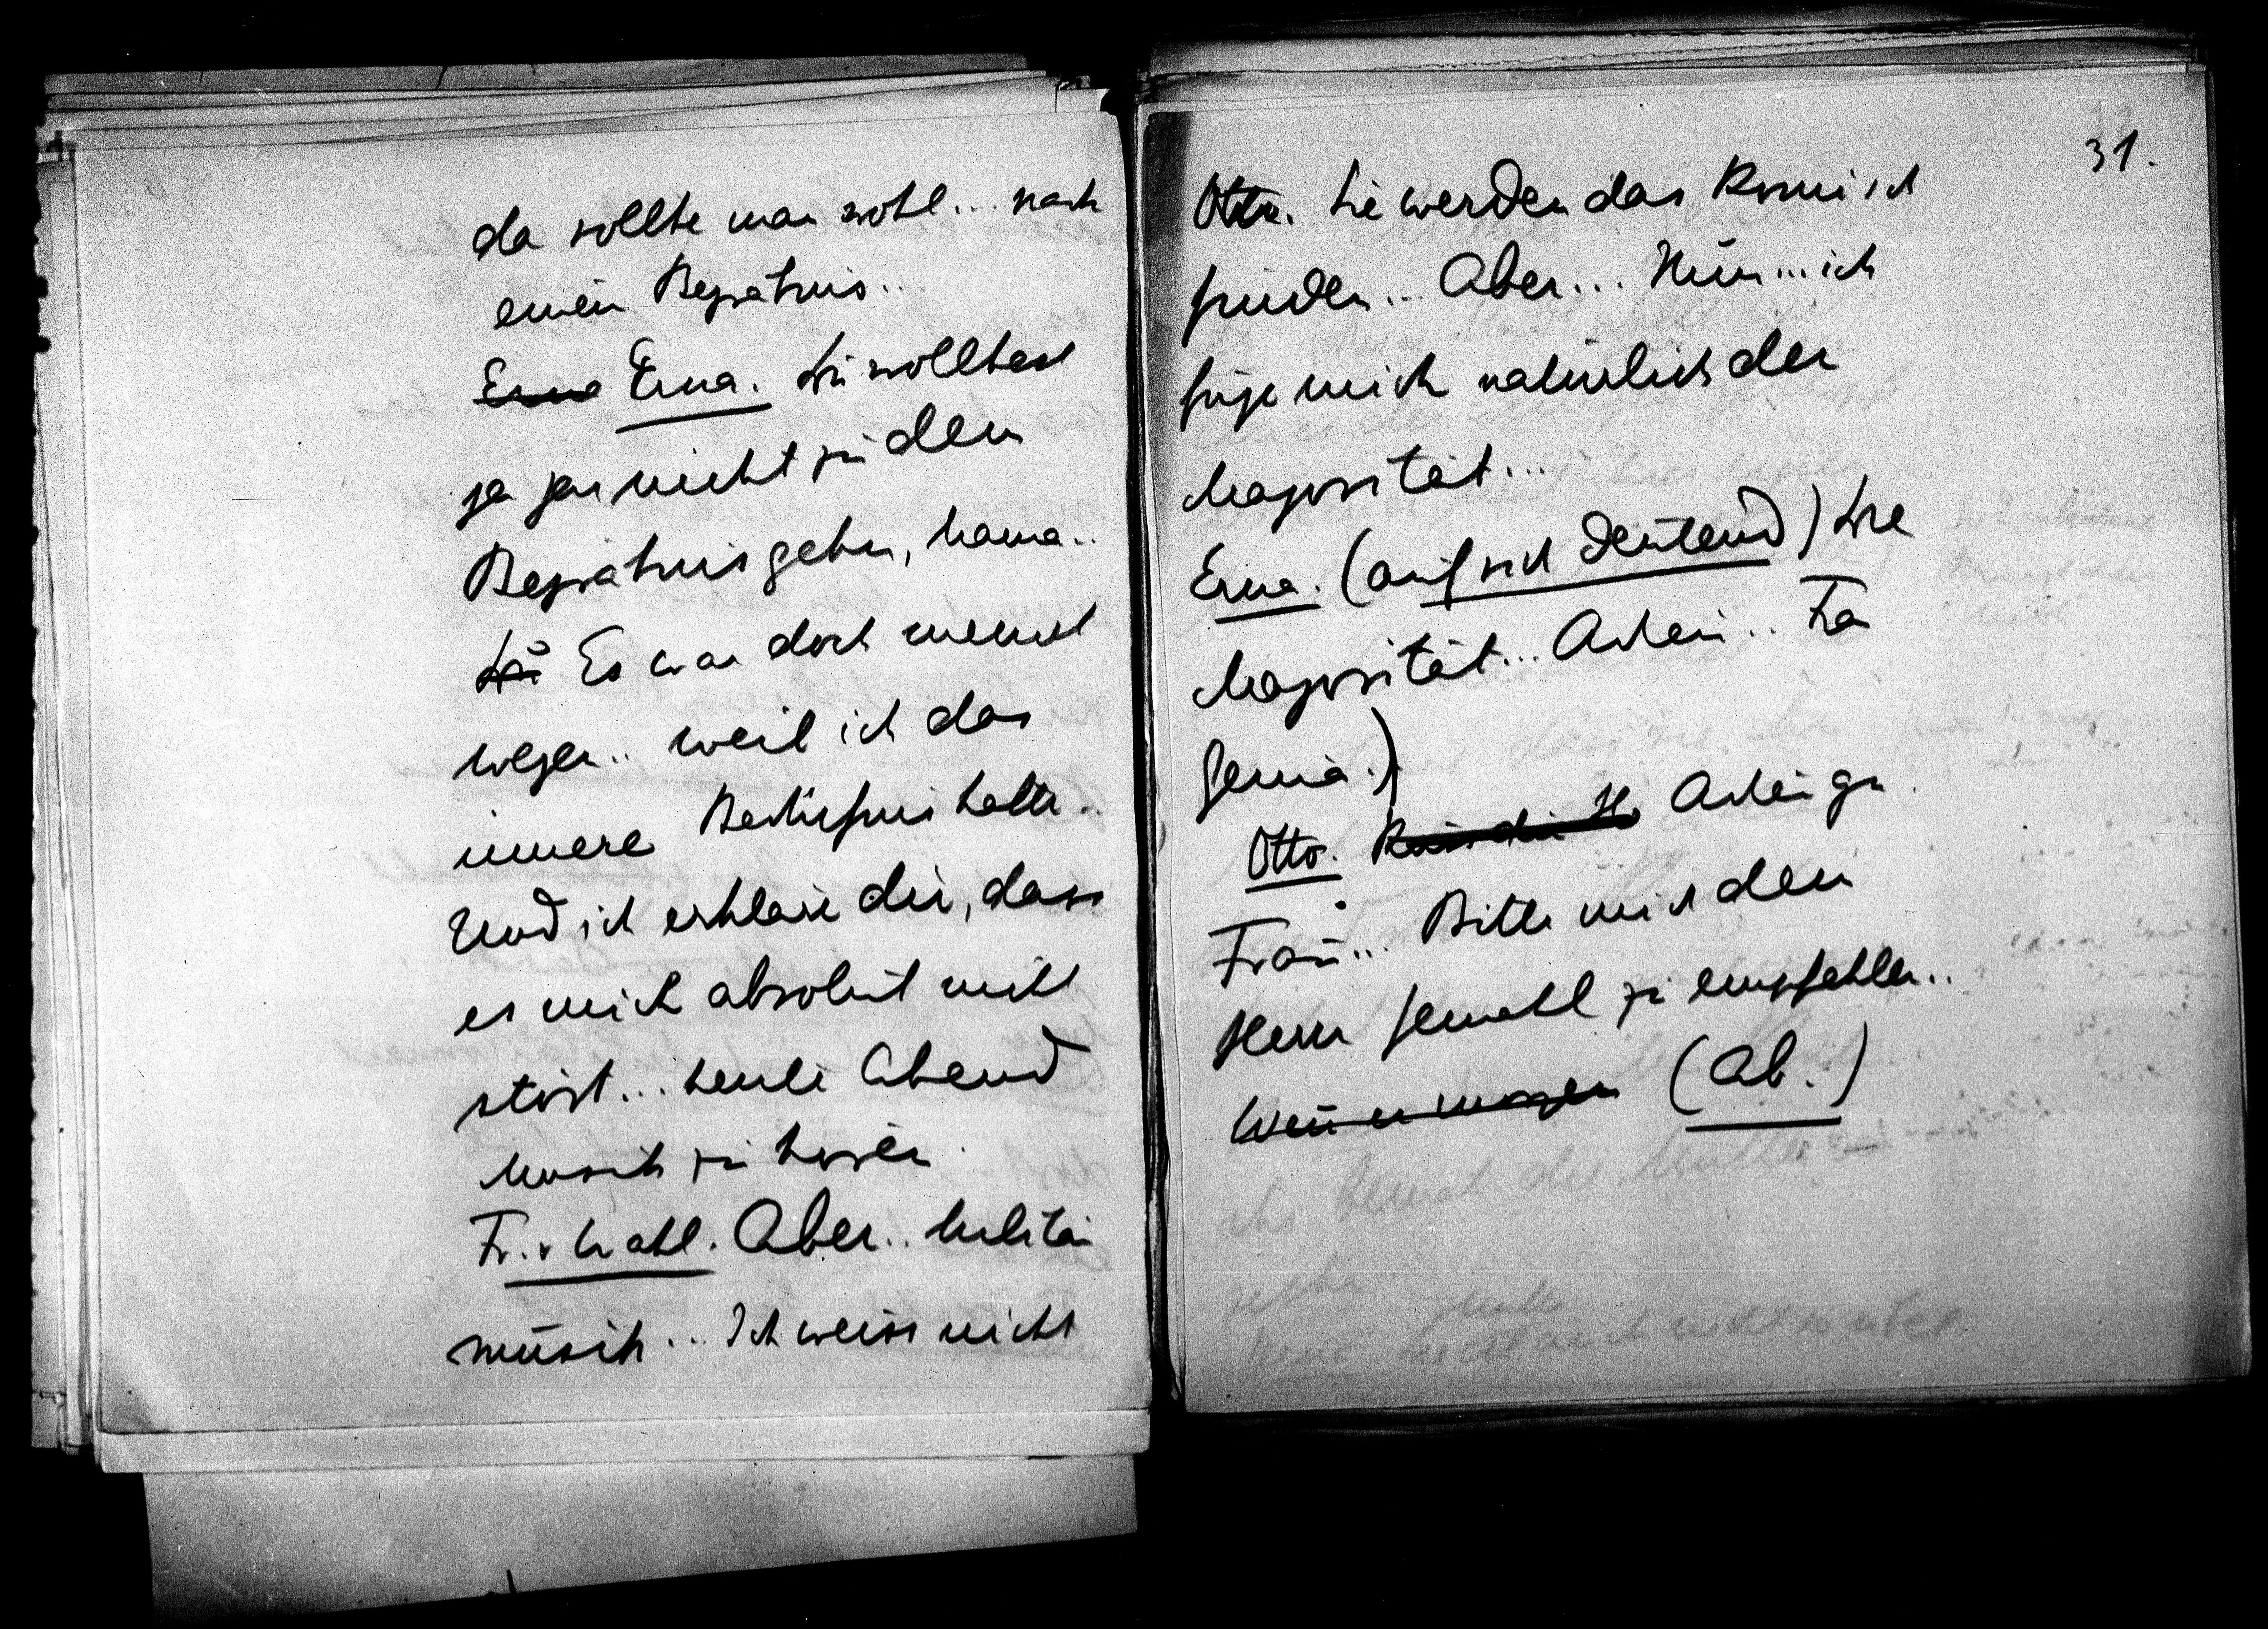 da sollte man wohl... nach
einem Begräbnis...
Erna Erna. Du wolltest
ja gar nicht zu dem
Begräbnis gehen, Mama..
Du Es war doch meinet
wegen.. weil ich das
innere Bedürfnis hatte..
Und ich erkläre dir, dass
es mich absolut nicht
stört... heute Abend
Musik zu hören.
Fr. v Wohl. Aber.. Militär
musik... Ich weiss nicht
31.
Otto. Sie werden das komisch
finden... Aber... Nun... ich
füge mich natürlich der
Majorität...
Erna. (auf sich deutend) Die
Majorität... Adieu.. Fa
Otto. Adieu gn.
Frau... Bitte mich dem
Herrn Gemahl zu empfehlen..
(Ab.)